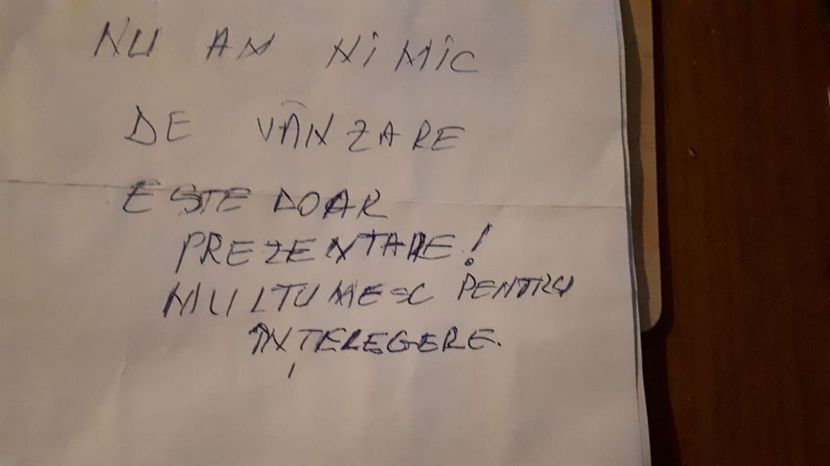 NU AM NIMIC
DE VÂNZARE
ESTE DOAR
PREZENTARE!
MULTUMESC PENTRU
ÎNȚELEGERE.